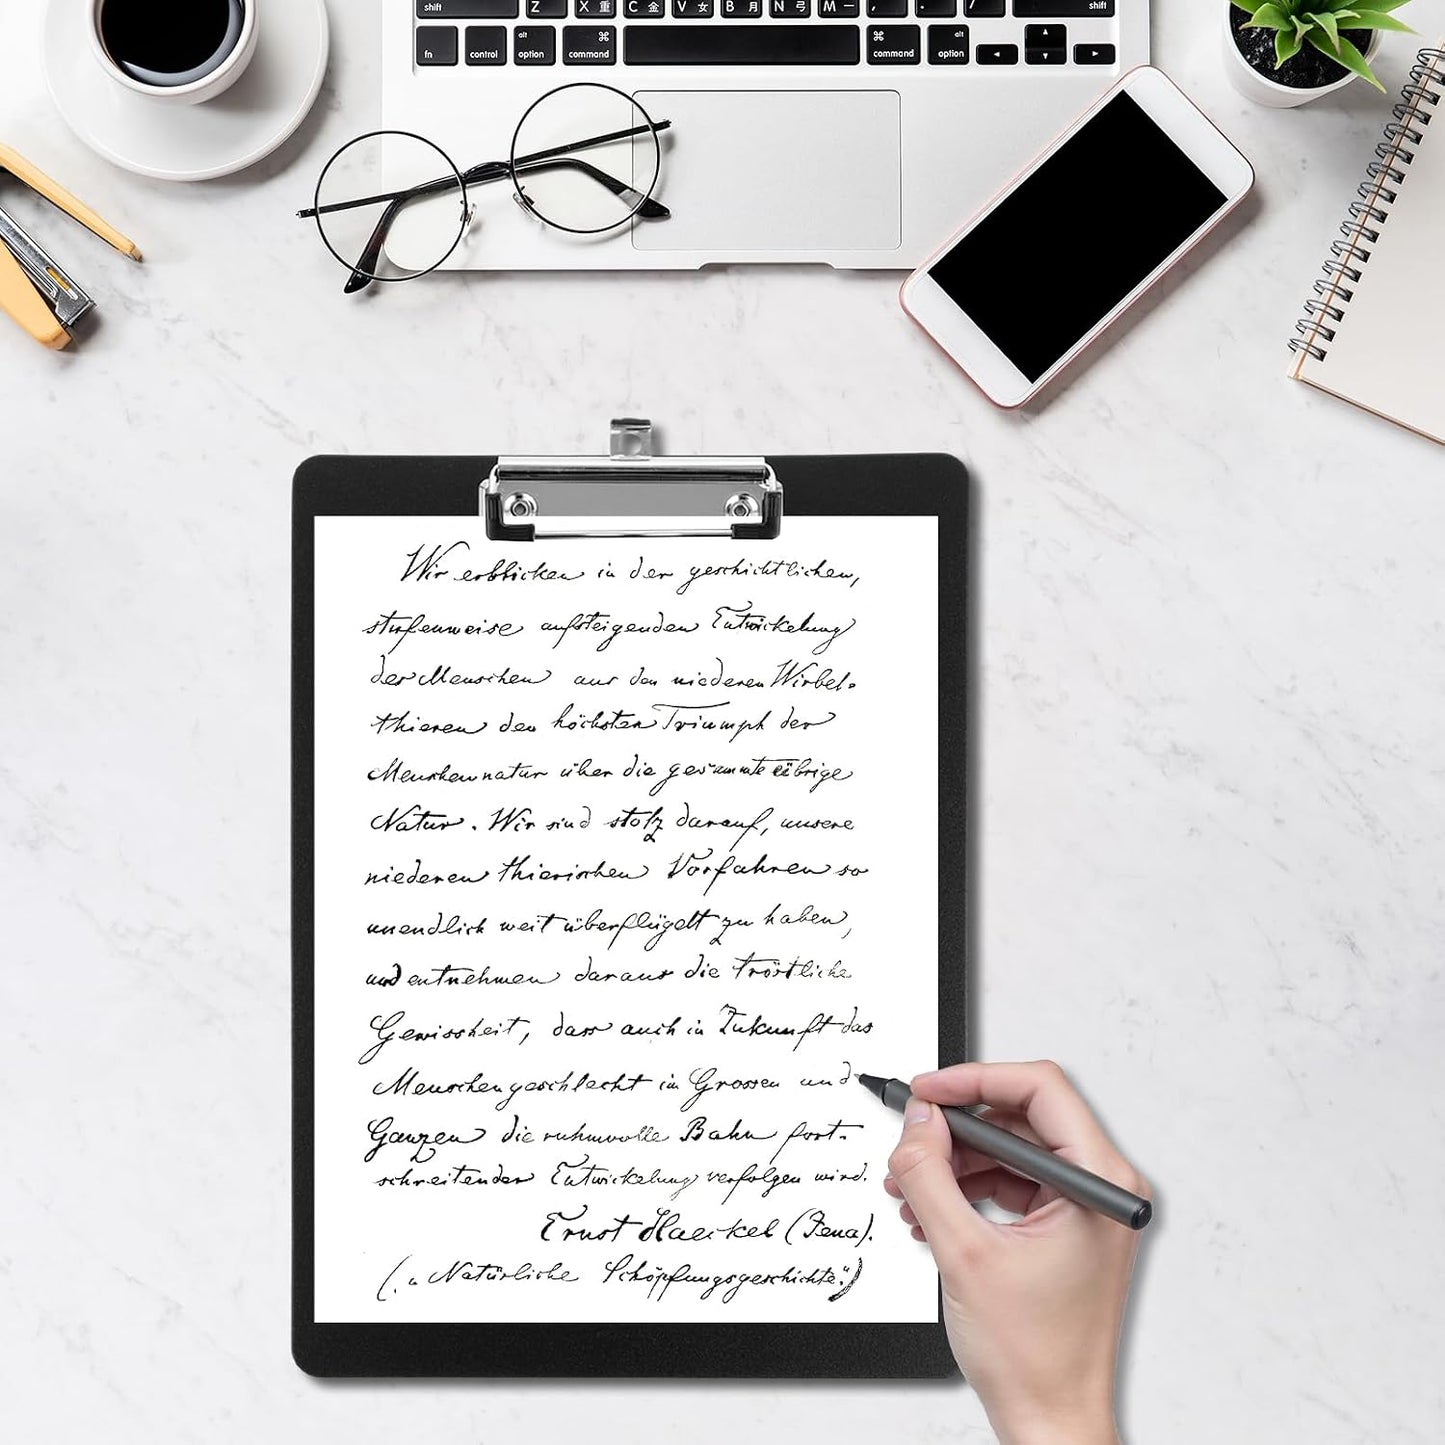 shift Z X 重 C 金 V 女 B 月 N 弓 M 一 shift
fn control alt option ⌘ command ⌘ command alt option
Wir erblicken in der geschichtlichen,
stufenweise aufsteigenden Entwickelung
des Menschen aus den niederen Wirbel-
thieren den höchsten Triumph der
Menschennatur über die gesammte übrige
Natur. Wir sind stolz darauf, unsere
niederen thierischen Vorfahren so
unendlich weit überflügelt zu haben,
und entnehmen daraus die tröstliche
Gewissheit, dass auch in Zukunft das
Menschengeschlecht im Grossen und
Ganzen die ruhmvolle Bahn fort-
schreitender Entwickelung verfolgen wird.
Ernst Haeckel (Jena).
(„Natürliche Schöpfungsgeschichte.")